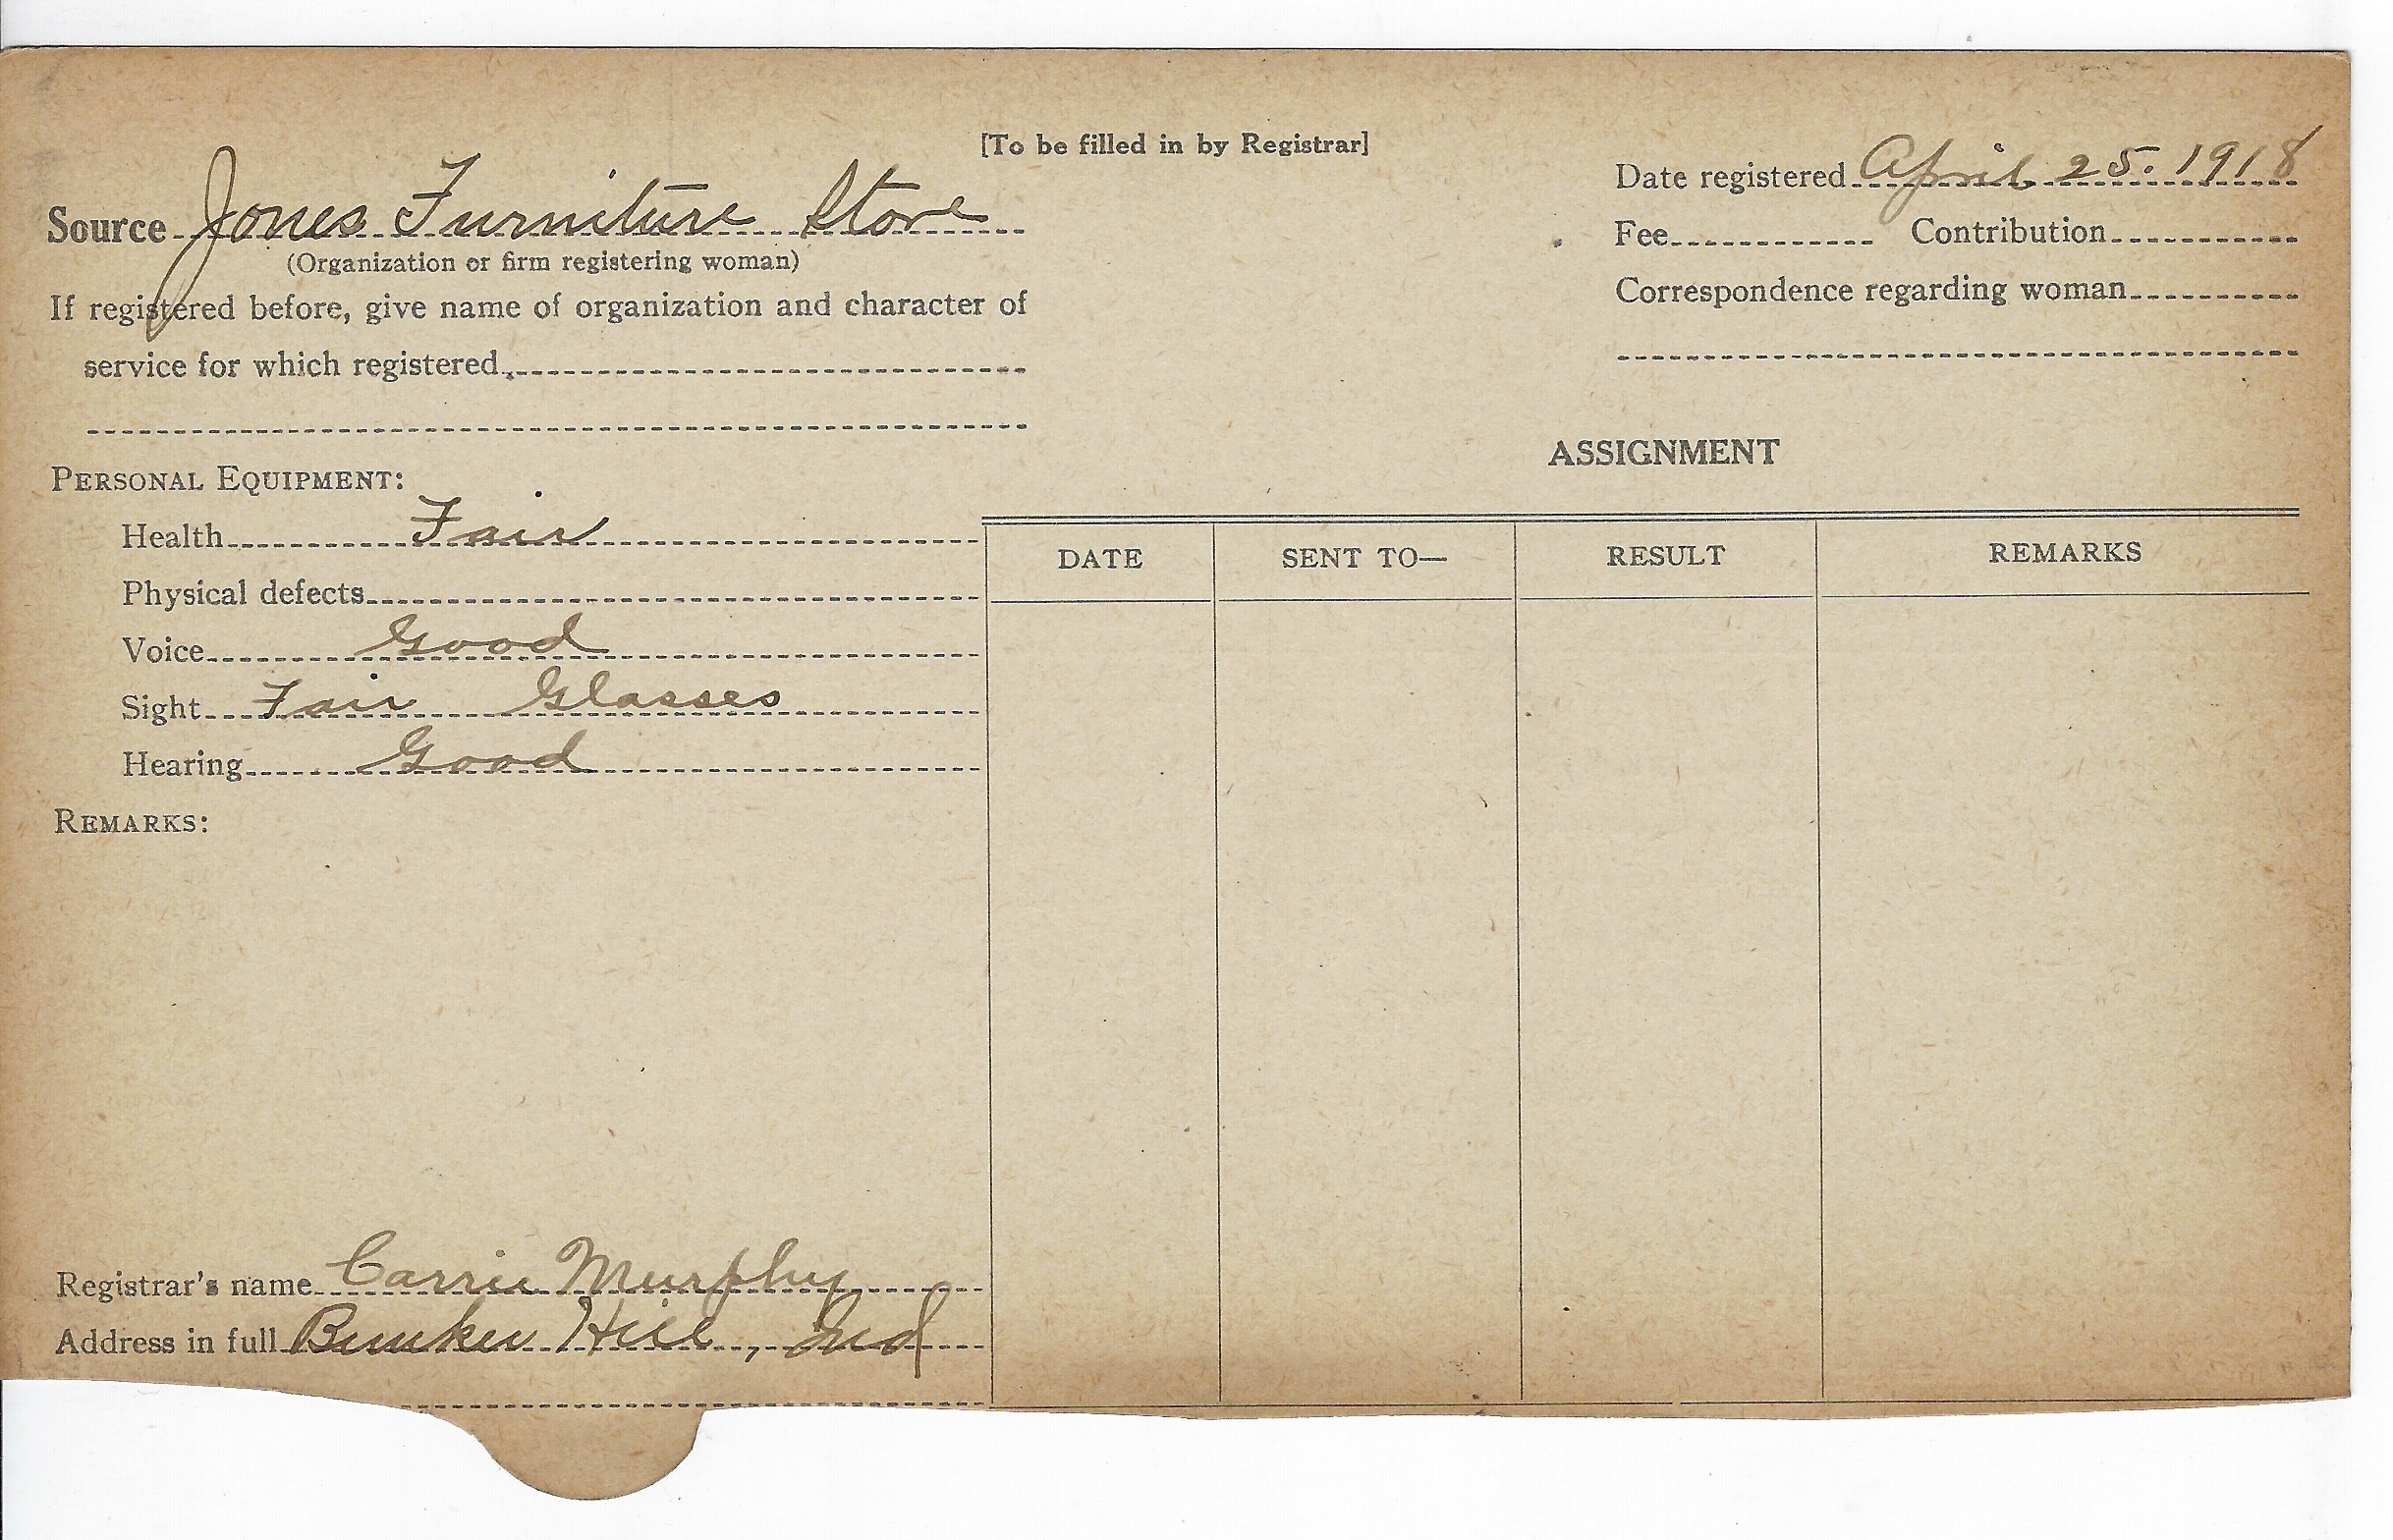 [To be filled in by Registrar]
Source Jones Furniture Store
(Organization or firm registering woman)
If registered before, give name of organization and character of
service for which registered
Date registered April 25. 1918
Fee Contribution
Correspondence regarding woman
PERSONAL EQUIPMENT:
Health Fair
Physical defects
Voice Good
Sight Fair Glasses
Hearing Good
REMARKS:
Registrar's name Carrie Murphy
Address in full Bunker Hill, Ind
ASSIGNMENT
DATE SENT TO— RESULT REMARKS